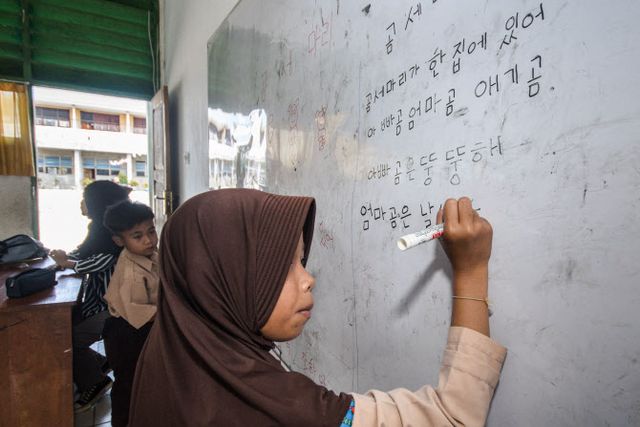 곰 세
곰세마리가 한 집에 있어
아빠곰엄마곰 애기곰
아빠곰은 뚱뚱해
엄마곰은 날